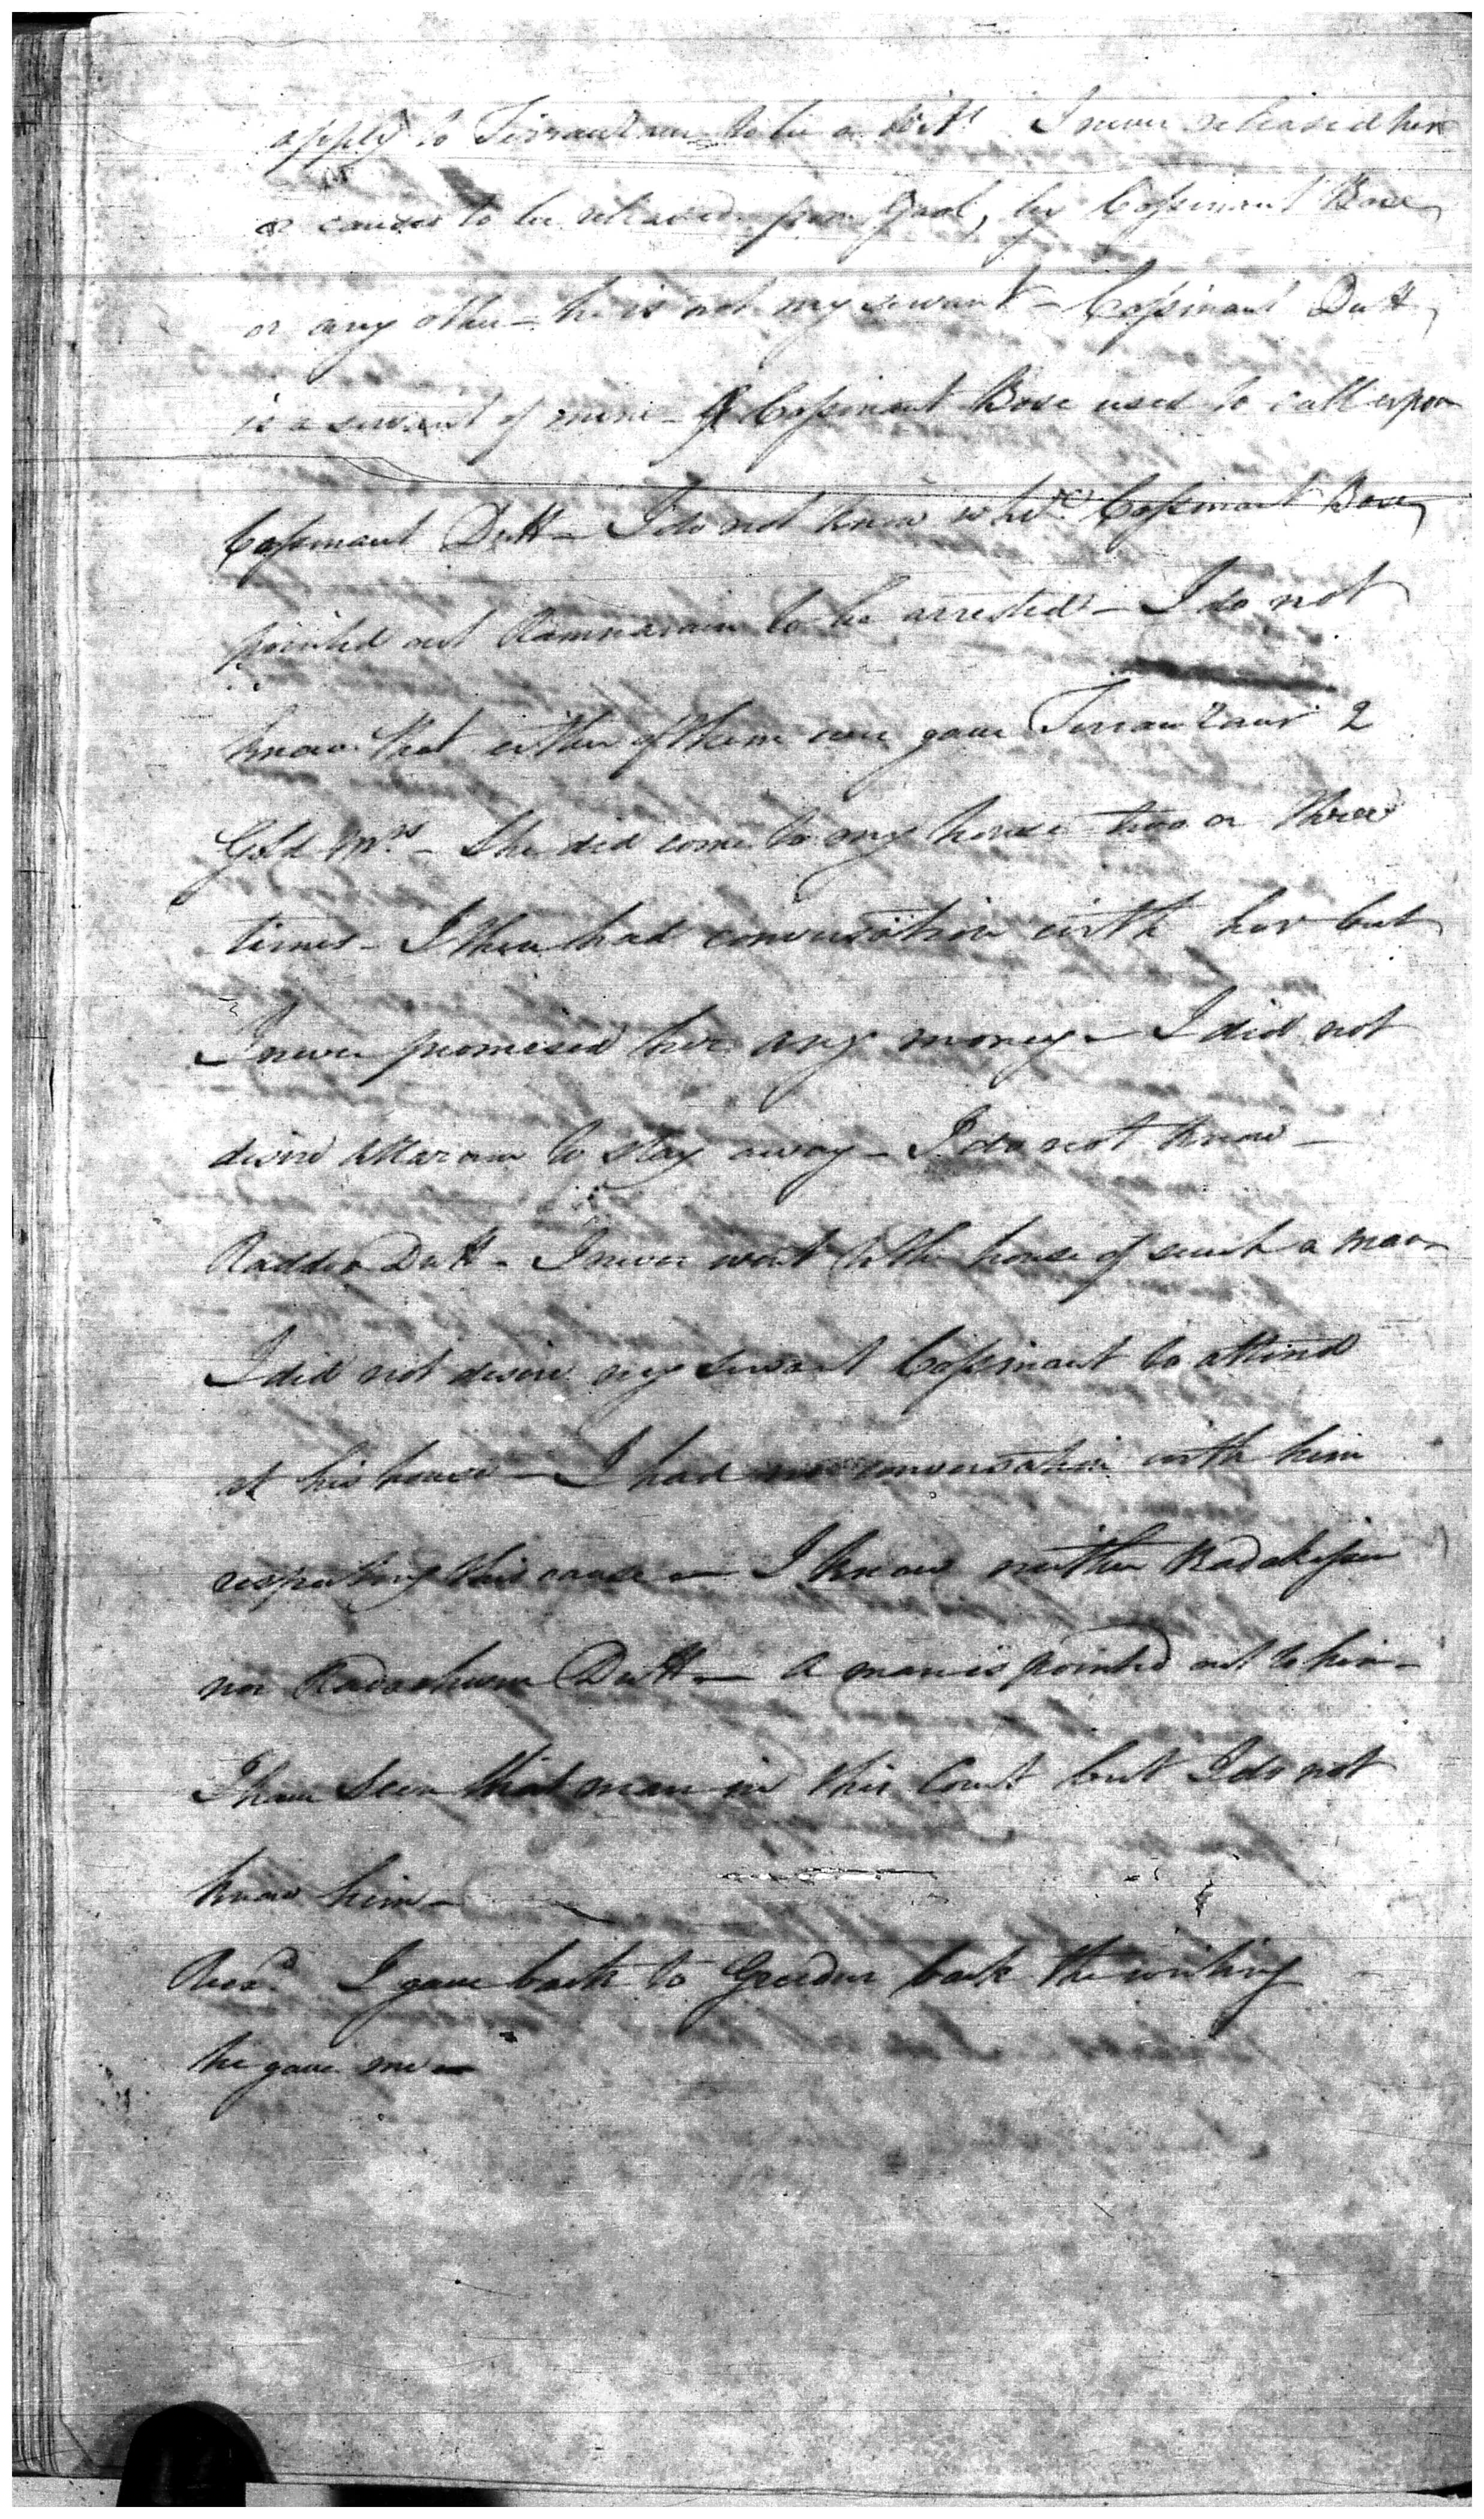 apply to Terrauzaun to be a Witt. I never released her
or caused to be released from Gaol, by Cossinaut Bose
or any other - he is not my servant - Cossinaut Dutt
is a servant of mine - Cossinaut Bose used to call upon
Cossinaut Dutt - I do not know whe.r Cossinaut Bose
pointed out Ramnarain to be arrested - I do not
know that either of them ever gave 2
Gold Mrs - She did come to my house two or three
times - I then had conversation with her but
I never promised her any money - I did not
desire Attaram to stay away - I do not know -
Raddoo Dutt - I never went to the house of such a man
I did not desire my servant Cossinaut to attend
at his house - I had no conversation with him
respecting this cause - I know neither Radakissen
nor Dutt - A man is pointed out to him -
I have seen that man in this Court but I do not
know him -
I gave back to back the writing
he gave me -